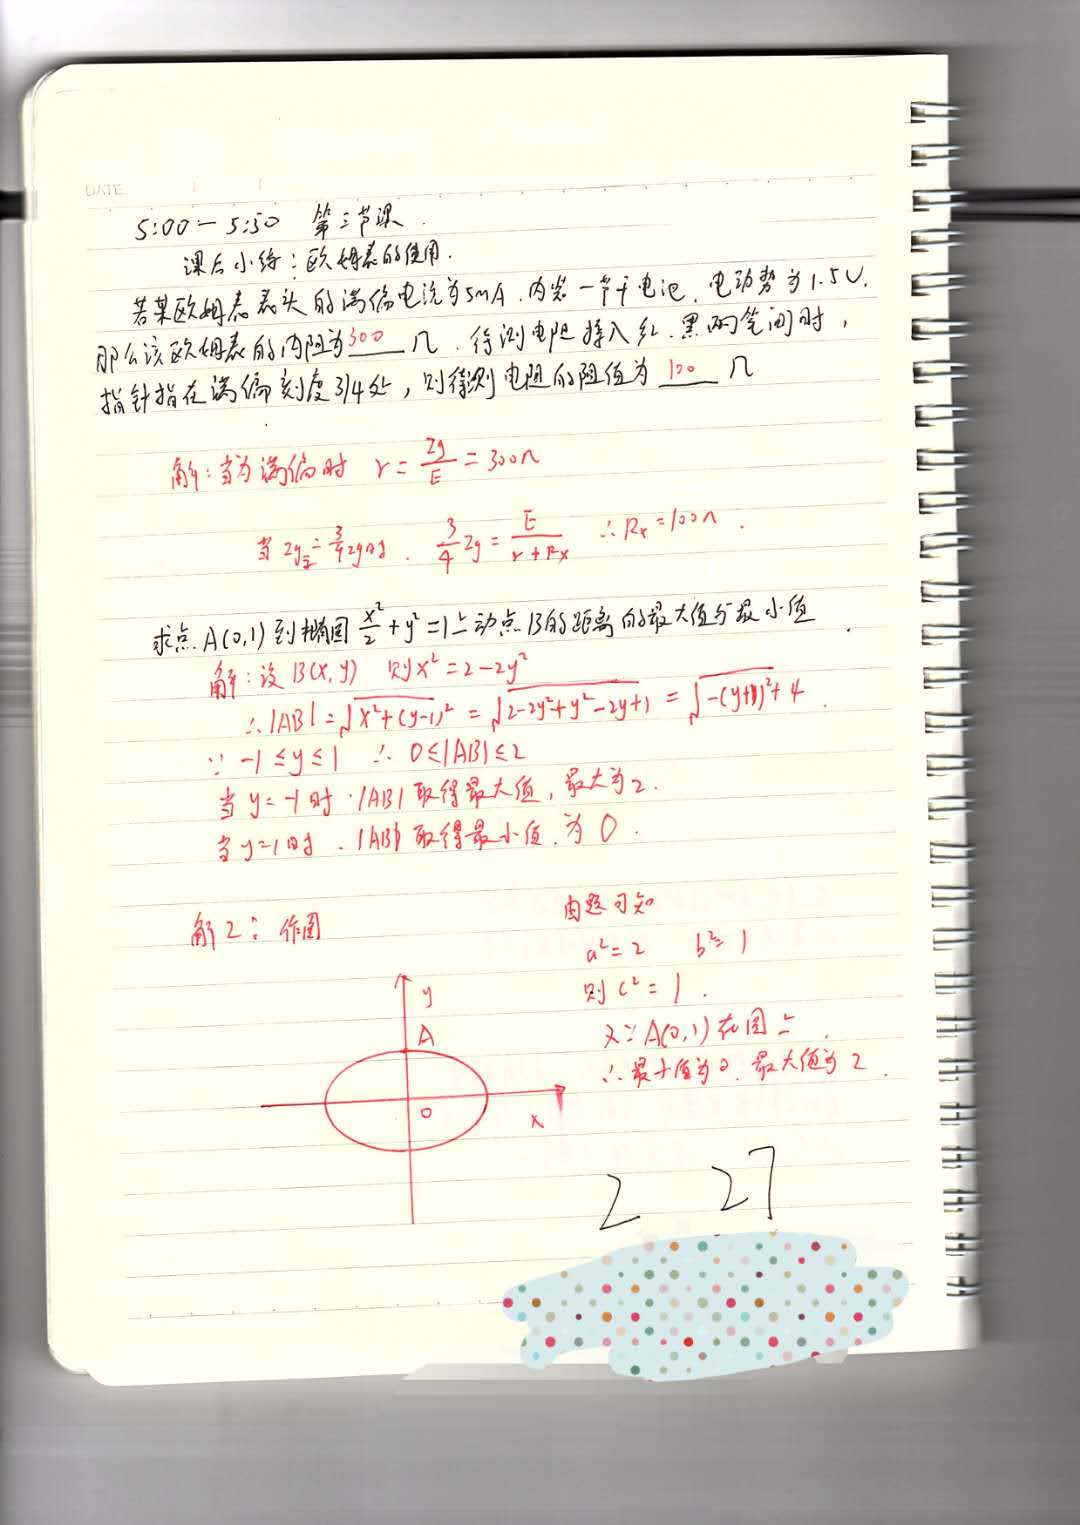 DATE
5:00-5:50 第三节课.
课后小练:欧姆表的使用.
若某欧姆表表头的满偏电流为5mA.内装一节干电池.电动势为1.5V.
那么该欧姆表的内阻为300Ω.待测电阻接入红.黑两笔间时,
指针指在满偏刻度3/4处,则待测电阻的阻值为100Ω
解:当为满偏时 r=Ig/E=300Ω
当 =3/4Ig时. 3/4Ig=E/(r+Rx) ∴Rx=100Ω.
求点A(0,1)到椭圆x²/2+y²=1上动点B的距离的最大值与最小值.
解:设B(x,y) 则x²=2-2y²
∴|AB|=√(x²+(y-1)²)=√(2-2y²+y²-2y+1)=√(-(y+1)²+4)
∵-1≤y≤1 ∴0≤|AB|≤2
当y=-1时.|AB|取得最大值,最大为2.
当y=1时.|AB|取得最小值.为0.
解2:作图
由题可知
a²=2 b²=1
则c²=1.
又∵A(0,1)在图上.
∴最小值为0.最大值为2.
y
A
O
x
2 27